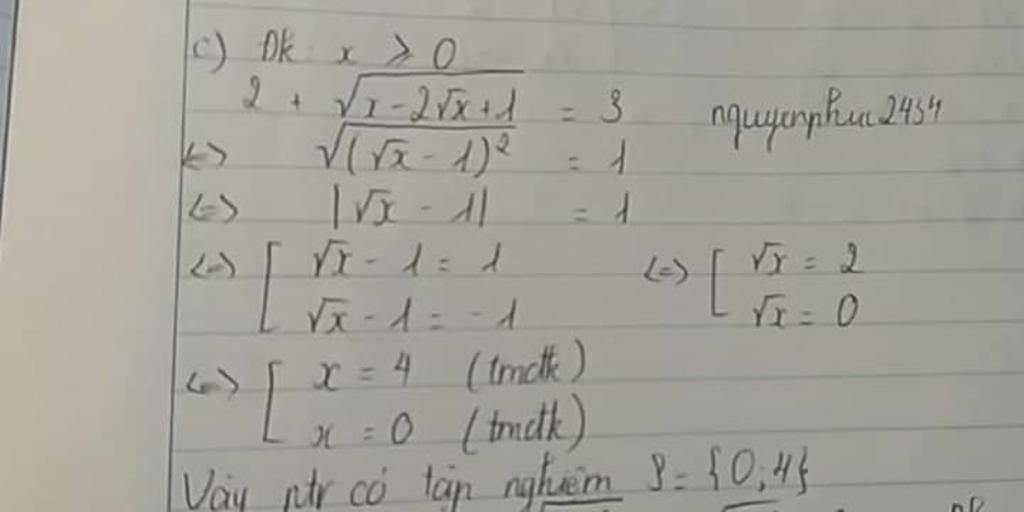 c) Đk: x ⩾ 0
2 + √(x - 2√x + 1) = 3
nguyenphuc2434
<=> √((√x - 1)²) = 1
<=> |√x - 1| = 1
<=> [ √x - 1 = 1 <=> [ √x = 2
√x - 1 = -1 √x = 0
<=> [ x = 4 (tmđk)
x = 0 (tmđk)
Vậy ptr có tập nghiệm S = {0;4}